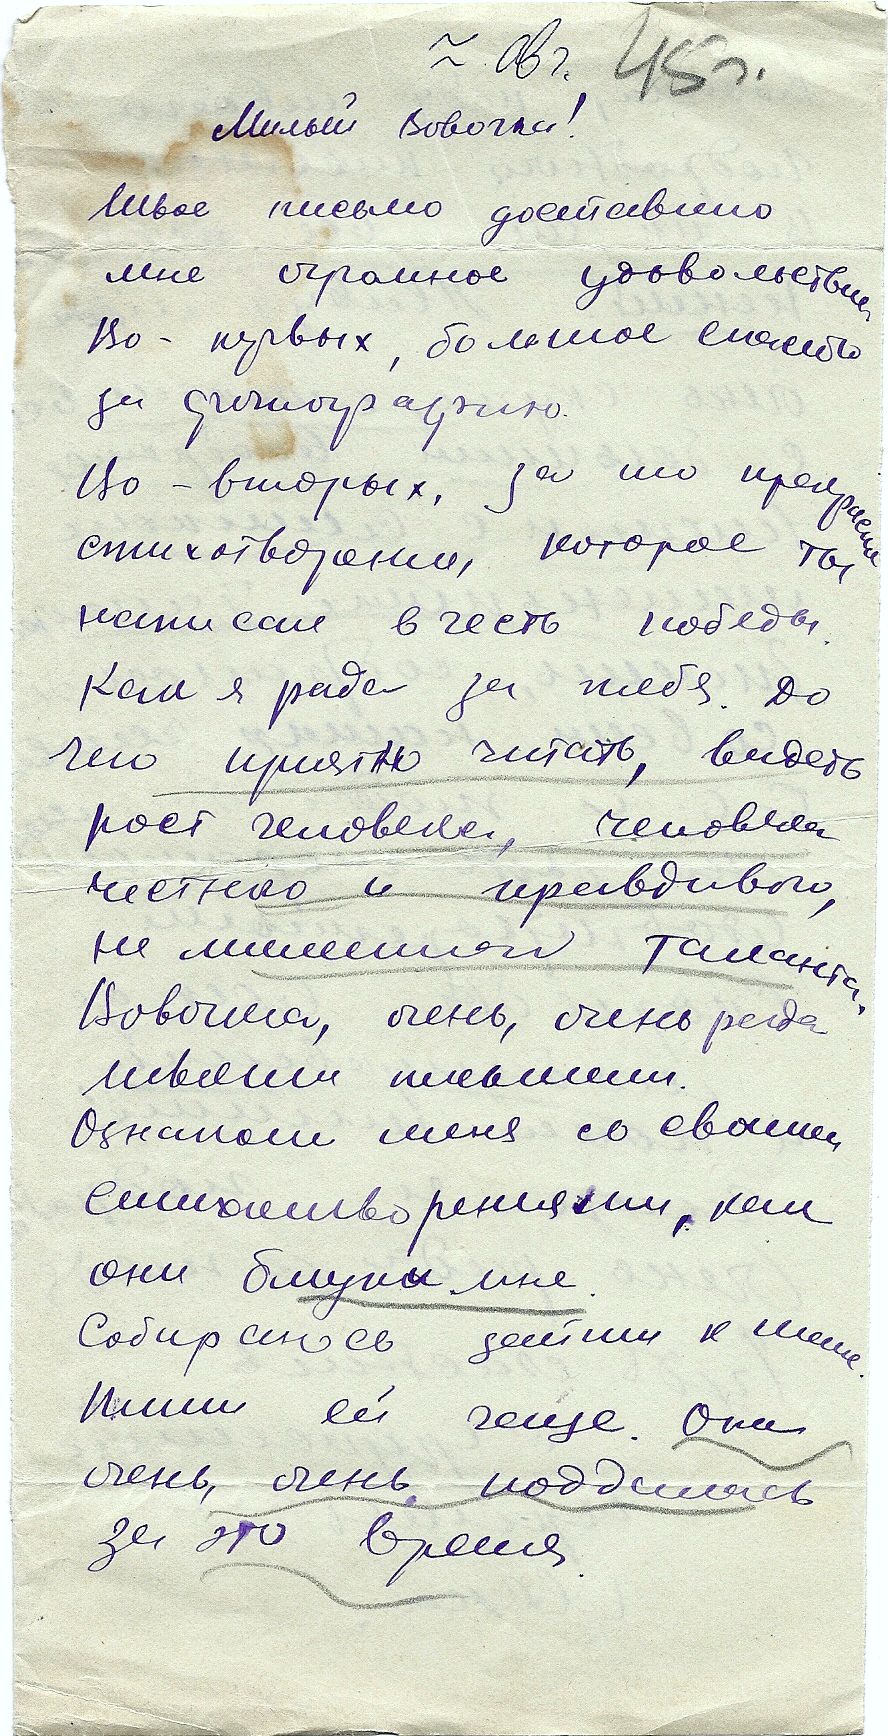 ~ Авг. 45 г.
Милый Вовочка!
Твое письмо доставило
мне огромное удовольствие.
Во-первых, большое спасибо
за фотографию.
Во-вторых, за то прекрасное
стихотворение, которое ты
написал в честь победы.
Как я рада за тебя. До
чего приятно читать, видеть
рост человека, человека
честного и правдивого,
не лишенного таланта.
Вовочка, очень, очень рада
твоим письмам.
Ознакомь меня со своими
стихотворениями, как
они близки мне.
Собираюсь зайти к маме.
Пиши ей чаще. Она
очень, очень поддалась
за это время.